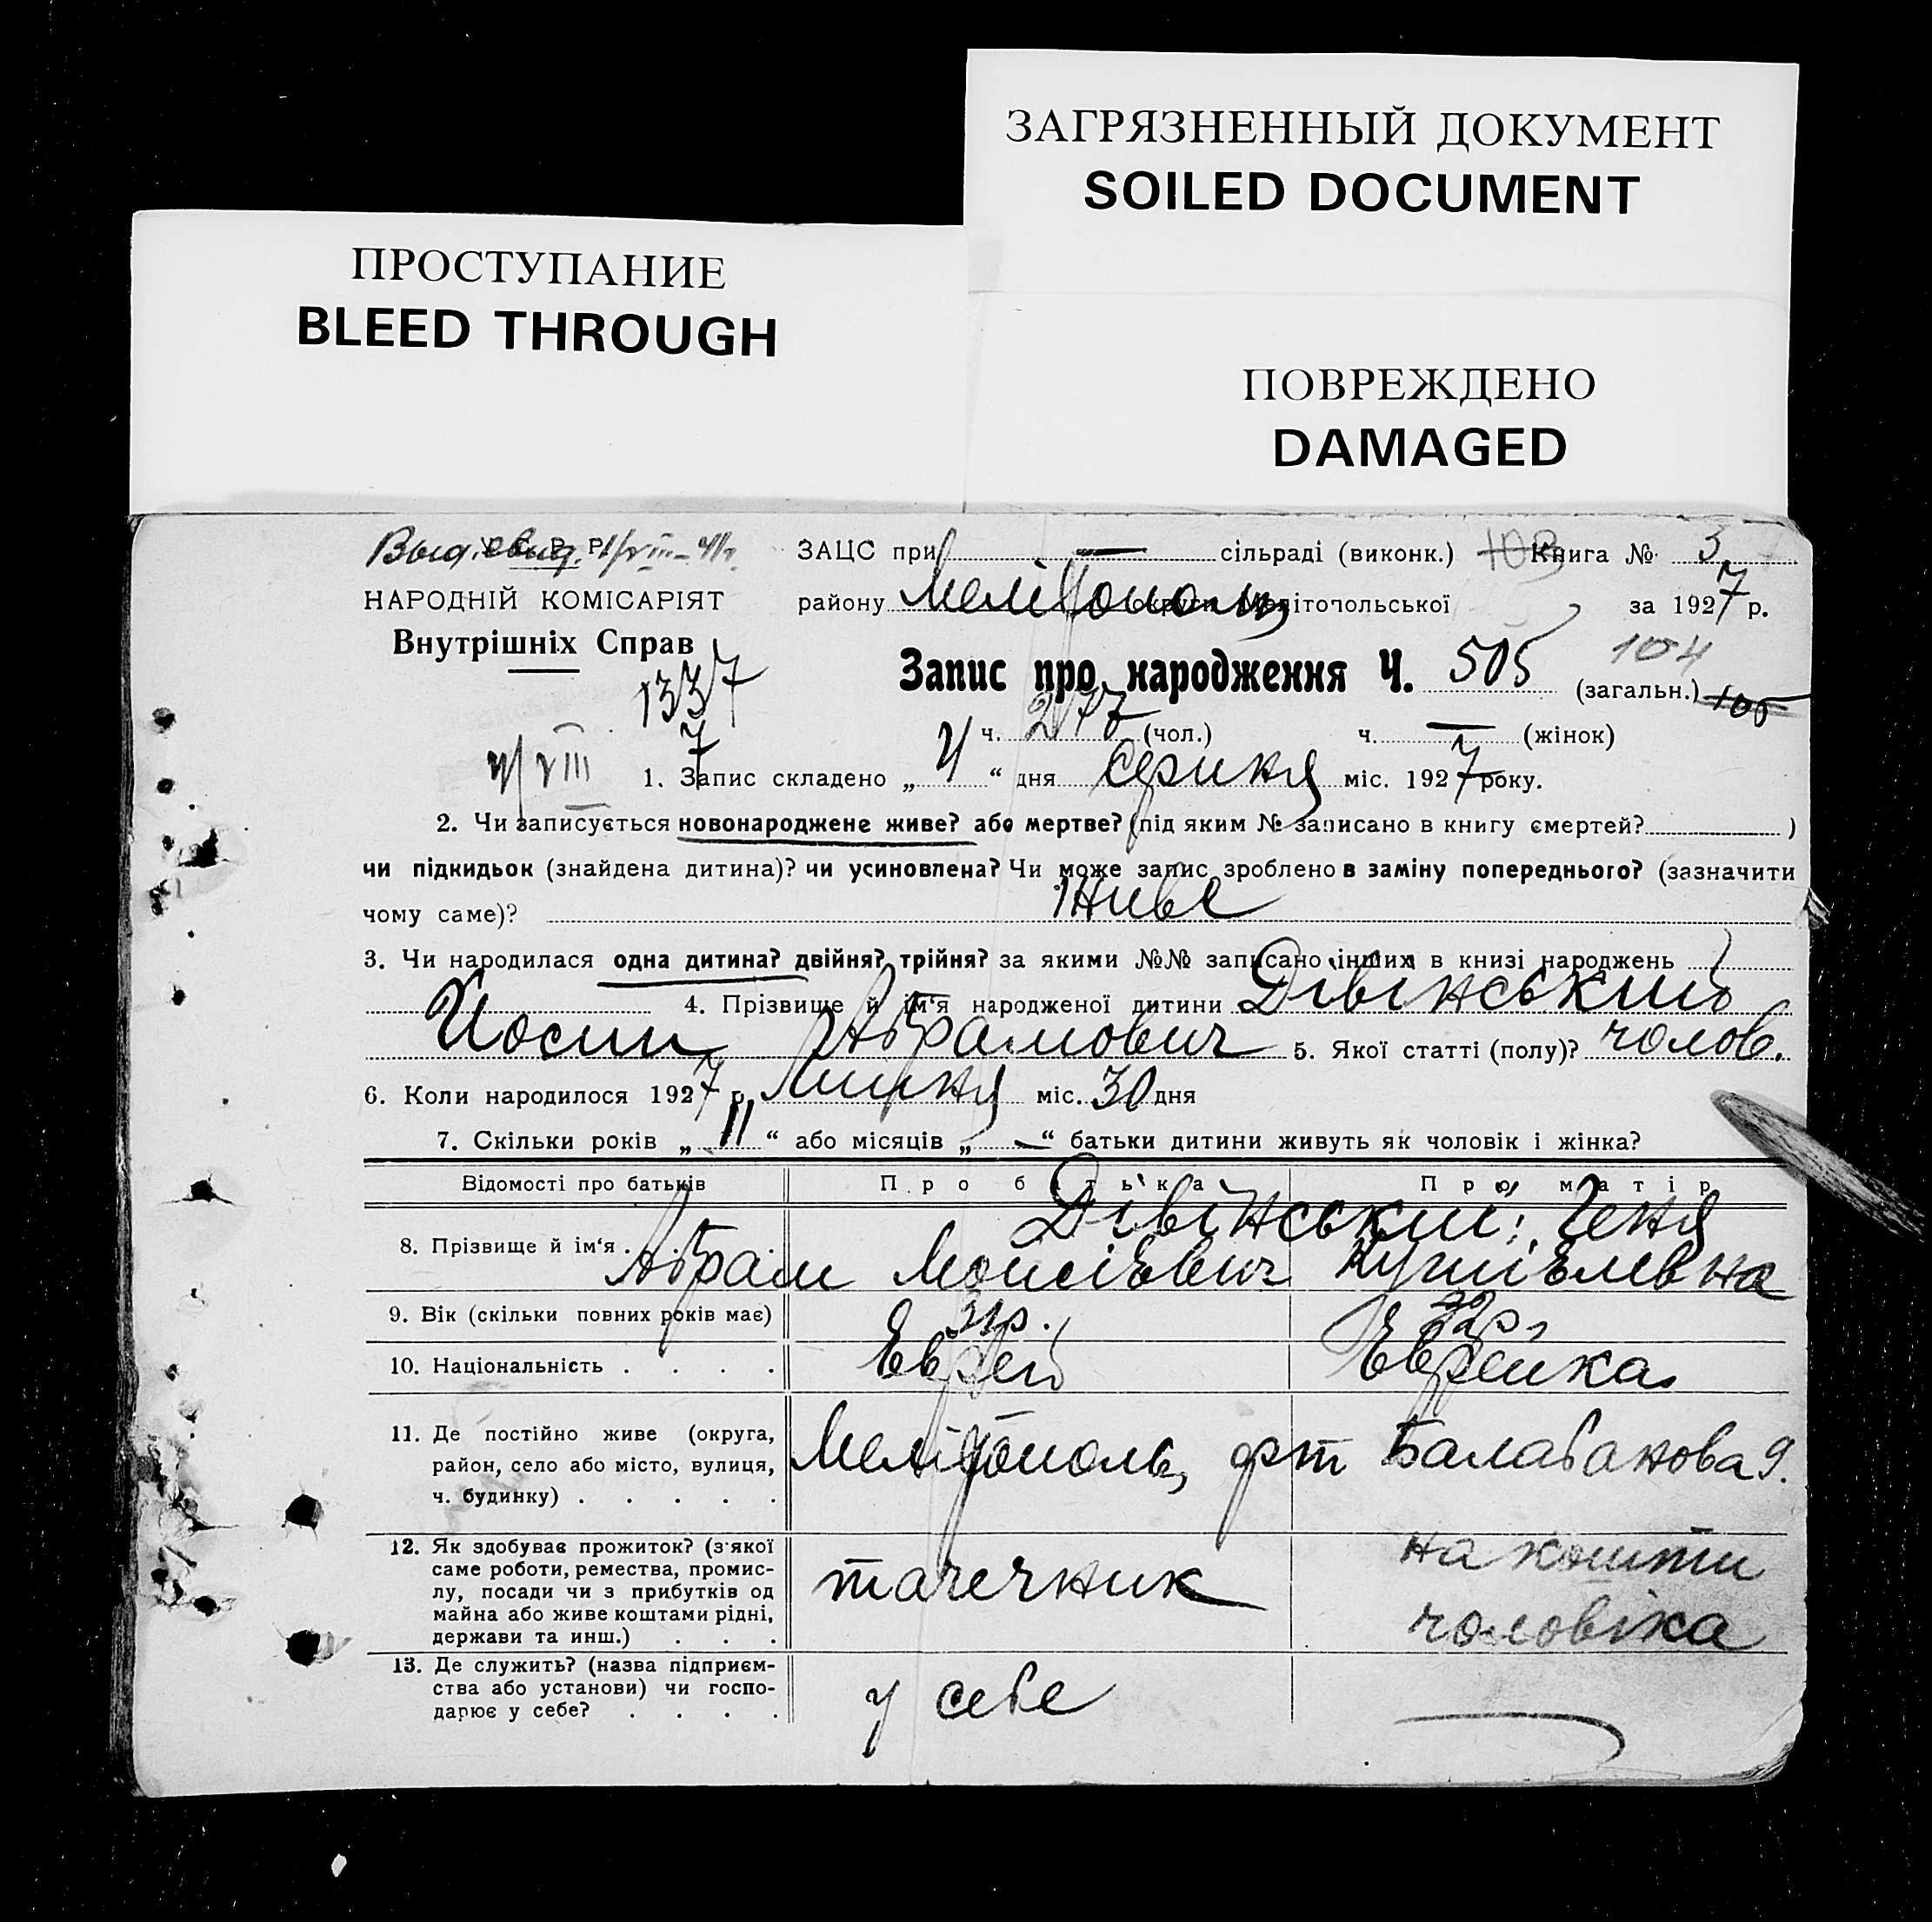 ЗАГРЯЗНЕННЫЙ ДОКУМЕНТ
SOILED DOCUMENT
ПРОСТУПАНИЕ
BLEED THROUGH
ПОВРЕЖДЕНО
DAMAGED
ЗАЦС при — сільраді (виконк.) 103 Книга № 3
НАРОДНІЙ КОМІСАРІЯТ
району Мелітополь округи Мелітопольської за 1927 р.
Внутрішніх Справ
1337
Запис про народження Ч. 505 (загальн.) 104 105
ч. 277 (чол.) ч. — (жінок)
4/VIII 1. Запис складено „ 4 “ дня Серпня міс. 1927 року.
2. Чи записується новонароджене живе? або мертве? (під яким № записано в книгу смертей? )
чи підкидьок (знайдена дитина)? чи усиновлена? Чи може запис зроблено в заміну попереднього? (зазначити
чому саме)? Живе
3. Чи народилася одна дитина? двійня? трійня? за якими №№ записано інших в книзі народжень
4. Прізвище й ім'я народженої дитини Дівінський
Йосип Абрамович 5. Якої статті (полу)? чолов.
6. Коли народилося 1927 р. Липня міс. 30 дня
7. Скільки років „ 11 “ або місяців „ — “ батьки дитини живуть як чоловік і жінка?
Відомості про батьків Про батька Про матір
8. Прізвище й ім'я . Дівінський; Геня
Абрам Мойсієвич
9. Вік (скільки повних років має) 31р. 32р.
10. Національність . . . . Еврей Еврейка
11. Де постійно живе (округа,
район, село або місто, вулиця,
ч. будинку) . . . . .
Мелітополь, фрт Балабанова 9.
12. Як здобуває прожиток? (з якої
саме роботи, ремества, промис-
лу, посади чи з прибутків од
майна або живе коштами рідні,
держави та инш.) . . .
тачечник
на кошти
чоловіка
13. Де служить? (назва підприєм-
ства або установи) чи госпо-
дарює у себе? . . . .
у себе